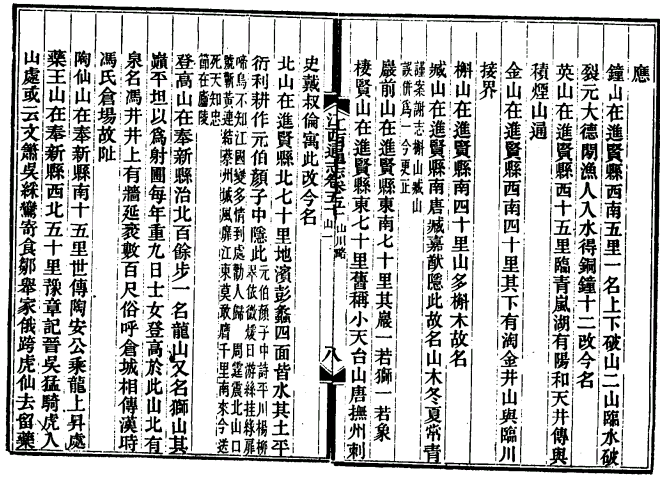 應
鐘山在進賢縣西南五里一名上下破山二山臨水破
裂元大德閒漁人入水得銅鐘十二改今名
英山在進賢縣西十五里臨青嵐湖有陽和天井傳與
積煙山過
金山在進賢縣西南四十里其下有淘金井山與臨川
接界
槲山在進賢縣南四十里山多槲木故名
臧山在進賢縣南唐臧嘉猷隱此故名山木冬夏常青
謹案謝志槲山臧山
誤併爲一今更正
巖前山在進賢縣東南七十里其巖一若獅一若象
棲賢山在進賢縣東七十里舊稱小天台山唐撫州刺
江西通志卷五十 山川略
山一
八
史戴叔倫寓此改今名
北山在進賢縣北七十里地濱彭蠡四面皆水其土平
衍利耕作元伯顏子中隱此
元伯顏子中詩平川楊柳
翠依微煖日游絲挂綠扉
啼鳥不知江國變多情到處勸人歸 周霆震北山口
黃連結
江東莫敢膺千里南來今送
死天知忠
節在廬陵
登高山在奉新縣治北百餘步一名龍山又名獅山其
巔平坦以爲射圃每年重九日士女登高於此山北有
泉名馮井井上有牆延袤數百尺俗呼倉城相傳漢時
馮氏倉場故址
陶仙山在奉新縣南十五里世傳陶安公乘龍上昇處
藥王山在奉新縣西北五十里豫章記晉吳猛騎虎入
山處或云文簫吳綵鸞寄食鄒舉家俄跨虎仙去留藥